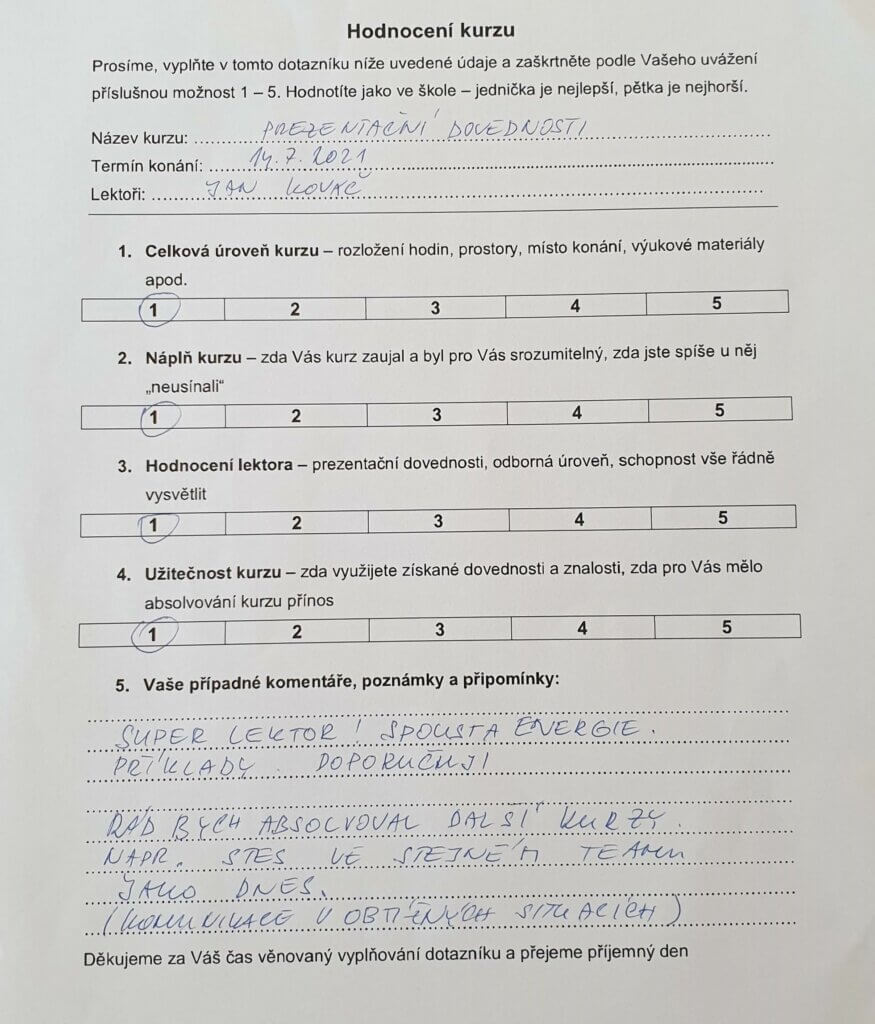 Hodnocení kurzu
Prosíme, vyplňte v tomto dotazníku níže uvedené údaje a zaškrtněte podle Vašeho uvážení
příslušnou možnost 1 – 5. Hodnotíte jako ve škole – jednička je nejlepší, pětka je nejhorší.
Název kurzu: PREZENTAČNÍ DOVEDNOSTI
Termín konání: 14.7.2021
Lektoři: JAN KOVAČ
1. Celková úroveň kurzu – rozložení hodin, prostory, místo konání, výukové materiály
apod.
1 2 3 4 5
2. Náplň kurzu – zda Vás kurz zaujal a byl pro Vás srozumitelný, zda jste spíše u něj
„neusínali“
1 2 3 4 5
3. Hodnocení lektora – prezentační dovednosti, odborná úroveň, schopnost vše řádně
vysvětlit
1 2 3 4 5
4. Užitečnost kurzu – zda využijete získané dovednosti a znalosti, zda pro Vás mělo
absolvování kurzu přínos
1 2 3 4 5
5. Vaše případné komentáře, poznámky a připomínky:
SUPER LEKTOR! SPOUSTA ENERGIE.
PŘÍKLADY. DOPORUČUJI
RÁD BYCH ABSOLVOVAL DALŠÍ KURZY.
NAPŘ. STES VE STEJNÉM TEAMU
JAKO DNES.
(KOMUNIKACE V OBTÍŽNÝCH SITUACÍCH)
Děkujeme za Váš čas věnovaný vyplňování dotazníku a přejeme příjemný den